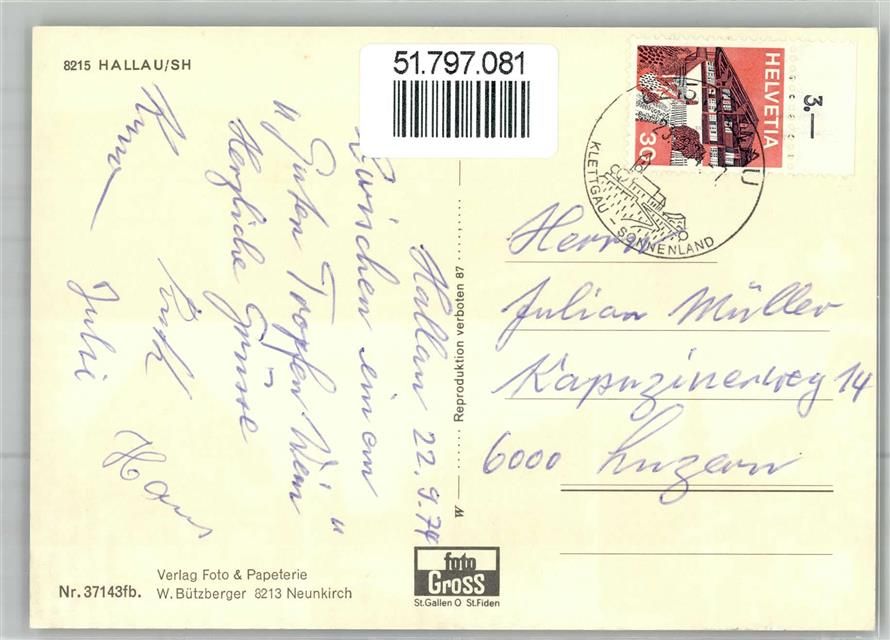 8215 HALLAU/SH
51.797.081
HELVETIA
30
3.—
KLETTGAU - SONNENLAND
Hallau 22.9.74
Zwischen einem
"Guten Tropfen Wein"
Herzliche Grüsse
Hans
Julie
Herrn
Julian Müller
Kapuzinerweg 14
6000 Luzern
W — Reproduktion verboten 87
foto
GROSS
St.Gallen O St.Fiden
Verlag Foto & Papeterie
Nr.37143fb. W. Bützberger 8213 Neunkirch